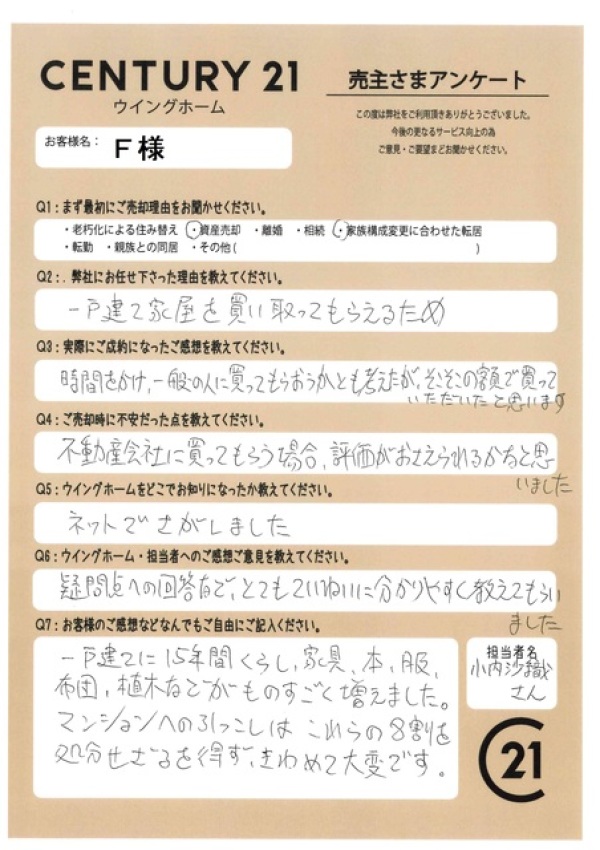 CENTURY 21
ウイングホーム
売主さまアンケート
この度は弊社をご利用頂きありがとうございました。
今後の更なるサービス向上の為
ご意見・ご要望まどお聞かせください。
お客様名: F様
Q1:まず最初にご売却理由をお聞かせください。
・老朽化による住み替え ・資産売却 ・離婚 ・相続 ・家族構成変更に合わせた転居
・転勤 ・親族との同居 ・その他( )
Q2:. 弊社にお任せ下さった理由を教えてください。
一戸建て家屋を買い取ってもらえるため
Q3:実際にご成約になったご感想を教えてください。
時間をかけ、一般の人に買ってもらおうかとも考えたが、そこそこの額で買って
いただいたと思います
Q4:ご売却時に不安だった点を教えてください。
不動産会社に買ってもらう場合、評価がおさえられるかなと思
いました
Q5:ウイングホームをどこでお知りになったか教えてください。
ネットでさがしました
Q6:ウイングホーム・担当者へのご感想ご意見を教えてください。
疑問点への回答など、とてもていねいに分かりやすく教えてもらい
ました
Q7:お客様のご感想などなんでもご自由にご記入ください。
一戸建てに15年間くらし、家具、本、服、
布団、植木などがものすごく増えました。
マンションへの引っこしは これらの8割を
処分せざるを得ず、きわめて大変です。
担当者名
小内沙織
さん
C21